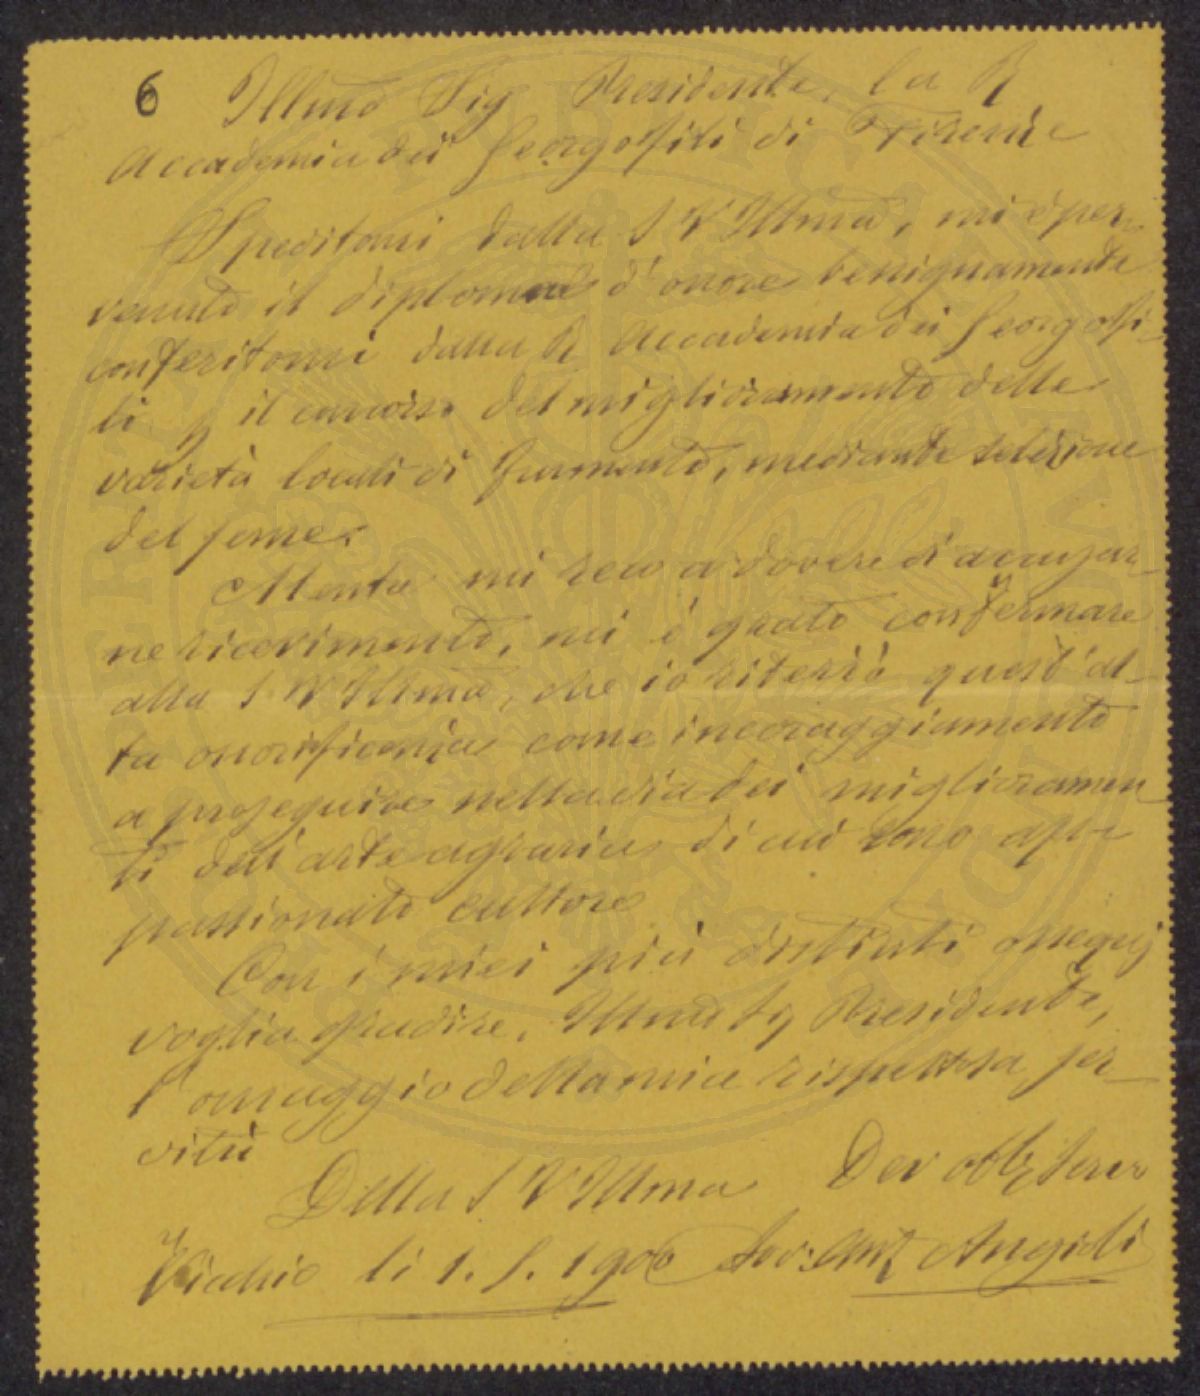 6 Illmo Sig Presidente, la R
Accademia dei Georgofili di Firenze
Speditomi dalla S V Illma, mi è per-
venuto il diploma d'onore benignamente
conferitomi dalla R Accademia dei Georgofi-
li p il concorso del miglioramento delle
varietà locali di frumento, mediante selezione
del seme.
Mentre mi reco a dovere di accusar-
ne ricevimento, mi è grato confermare
alla S. V Illma, che io riterrò quest'al-
ta onorificenza come incoraggiamento
a proseguire nella via dei miglioramen
ti dell'arte agraria di cui sono ap-
passionato cultore
Con i miei più distinti ossequj
voglia gradire, Illmo Sig Presidente,
l'omaggio della mia rispettosa ser-
vitù
Della S V Illma Dev obb Serv
Vicchio li 1. 5. 1906 Ant Angioli